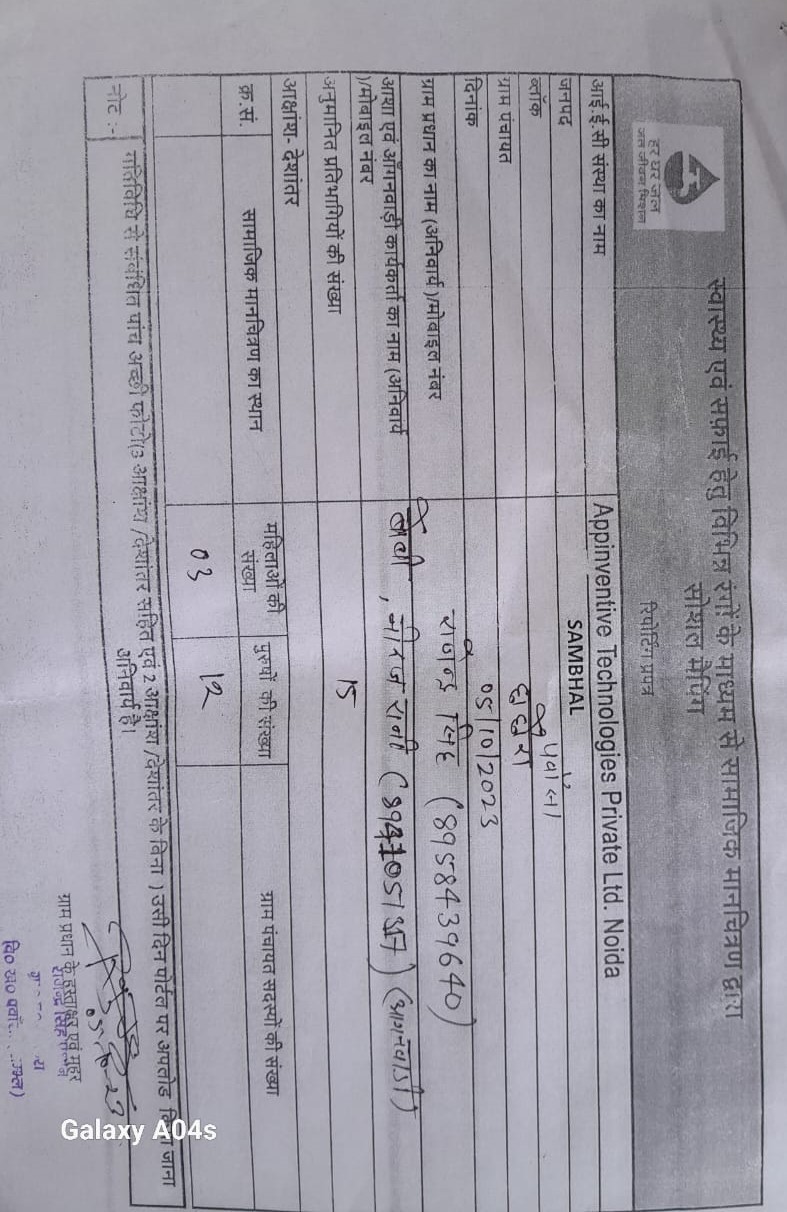 हर घर जल
जल जीवन मिशन
स्वास्थ्य एवं सफाई हेतु विभिन्न रंगों के माध्यम से सामाजिक मानचित्रण द्वारा
सोशल मैपिंग
रिपोर्टिंग प्रपत्र
आई.ई.सी संस्था का नाम Appinventive Technologies Private Ltd. Noida
जनपद SAMBHAL
ब्लॉक पवांसा
ग्राम पंचायत
दिनांक 05/10/2023
ग्राम प्रधान का नाम (अनिवार्य )/मोबाइल नंबर राजेन्द्र सिंह (8958439640)
आशा एवं आँगनवाड़ी कार्यकर्ता का नाम (अनिवार्य
)/मोबाइल नंबर , नीरज रानी (आगनवाडी)
अनुमानित प्रतिभागियों की संख्या 15
आक्षांश- देशांतर
क्र.सं. सामाजिक मानचित्रण का स्थान महिलाओं की संख्या पुरुषों की संख्या ग्राम पंचायत सदस्यों की संख्या
03 12
नोट :- गतिविधि से संबंधित पांच अच्छी फोटो(3 आक्षांश /देशांतर सहित एवं 2 आक्षांश /देशांतर के बिना ) उसी दिन पोर्टल पर अपलोड जाना
अनिवार्य है।
05-10-23
ग्राम प्रधान के हस्ताक्षर एवं मुहर
Galaxy A04s